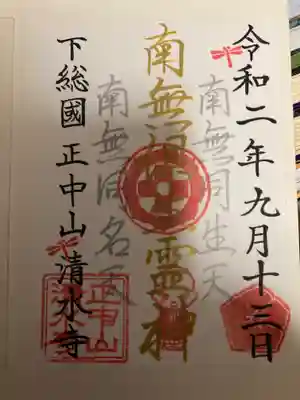 令和二年九月十三日
南無同生天
南無 靈神
南無同名天
下総國 正中山 清水寺
正中山